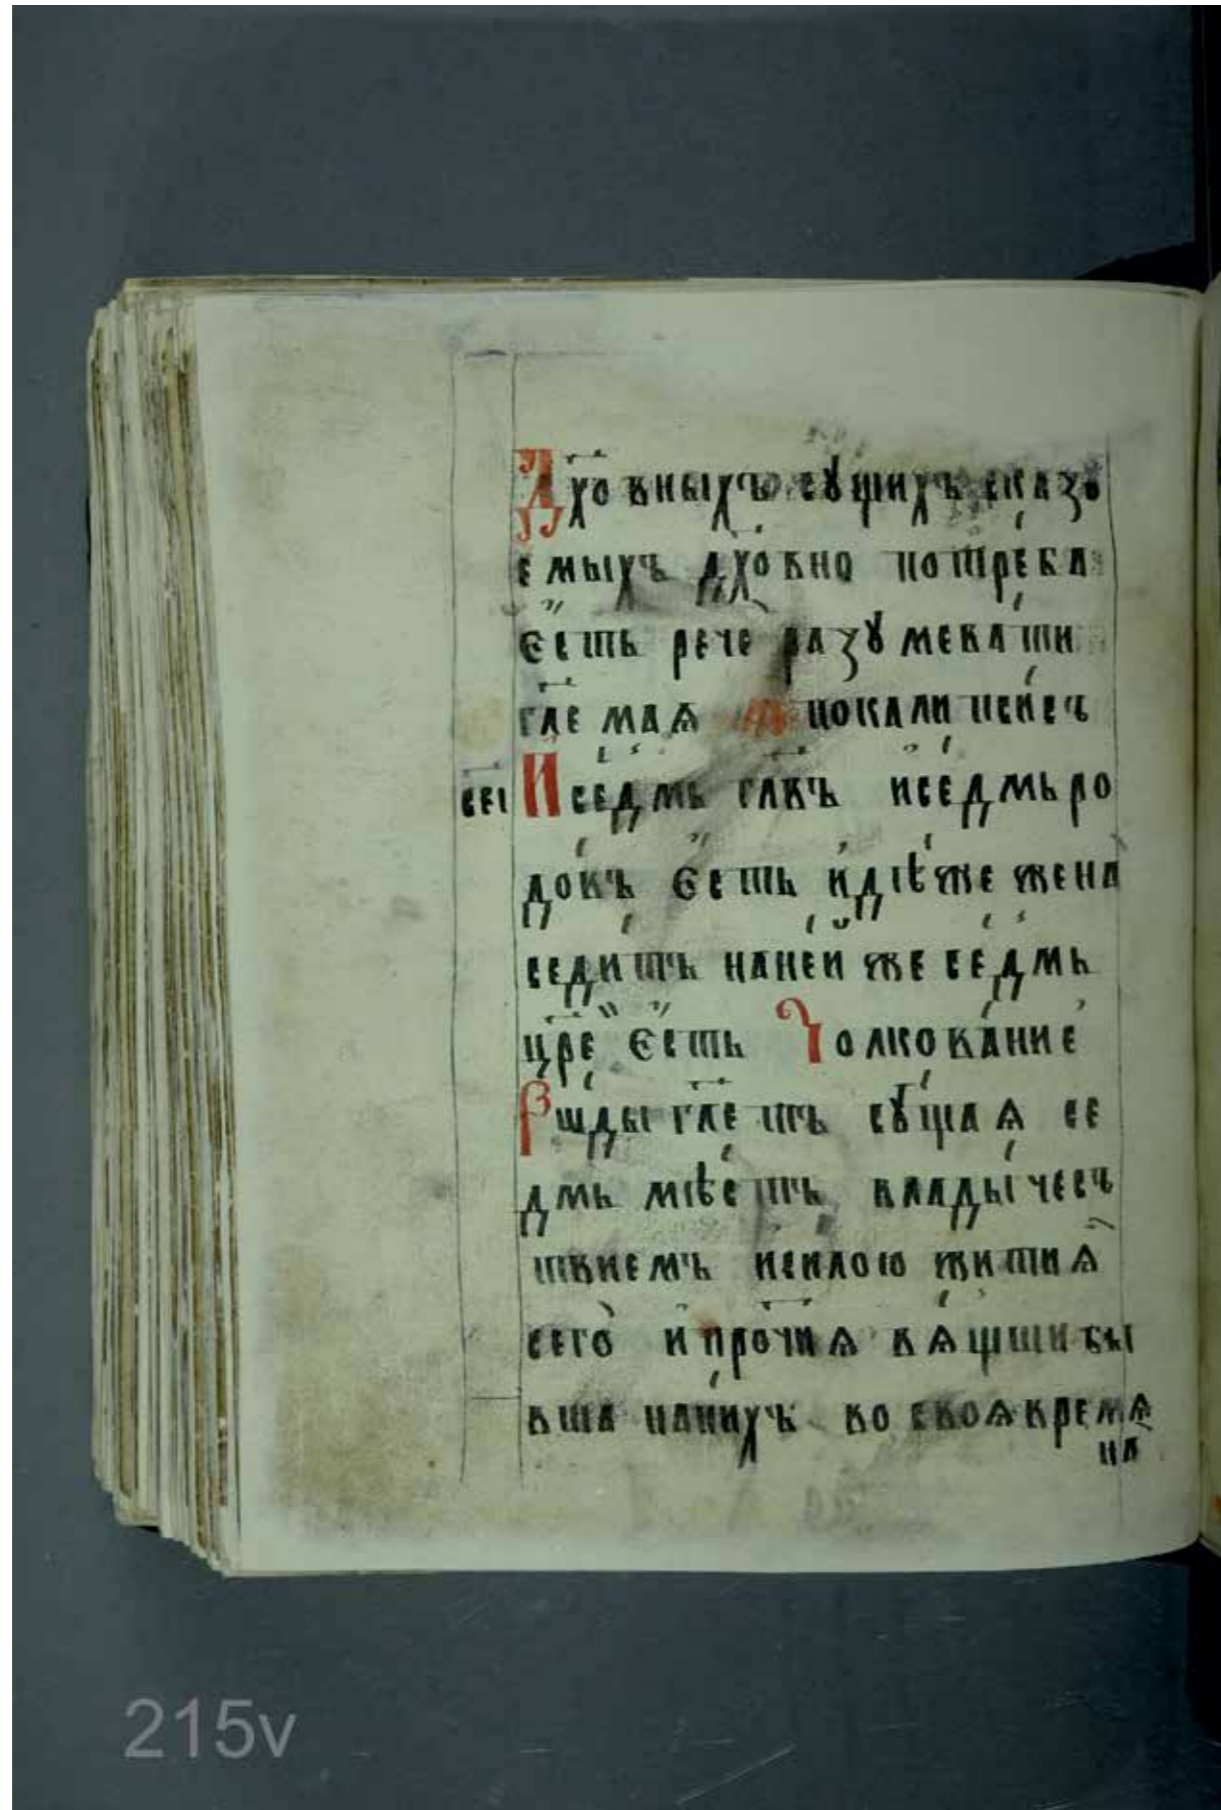 Дх҃овныхъ сꙋщихъ сказꙋ
емыхъ дх҃овно потреба
є҆сть рече разꙋмевати
гл҃емаѧ Апокалипсисъ
сеі И седмь главъ исе́дмь ро
довъ є҆сть и҆дѣже жена
седитъ наней же се́дмь
цр҃е є҆сть Толкова́ние
Рищды гл҃етъ сꙋщаѧ се
дмь мѣстъ влады́чесъ
твиемъ исилою житиѧ
сего̀ и҆ прочиѧ вѧщши бы
вша нанихъ во своѧ время
на
215v